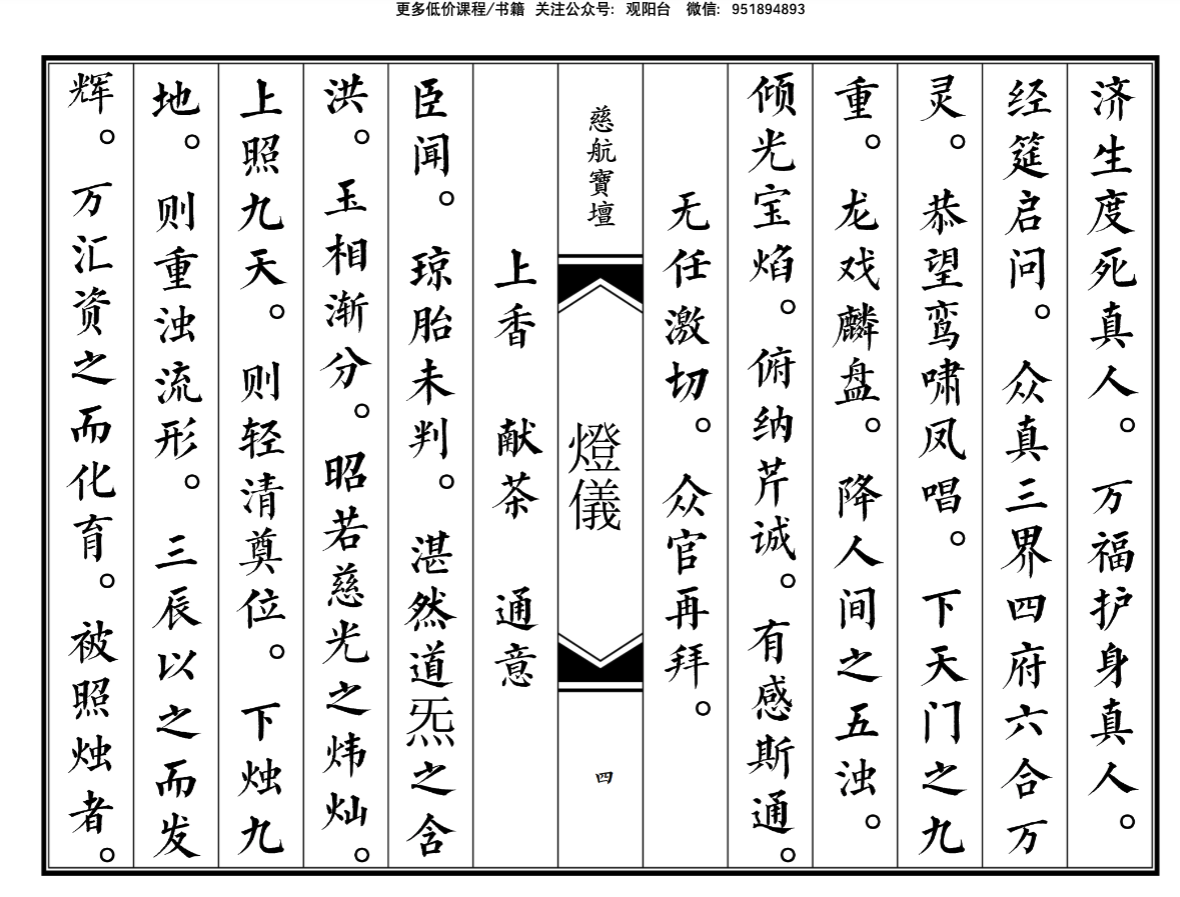 更多低价课程/书籍 关注公众号: 观阳台 微信: 951894893
济生度死真人。万福护身真人。
经筵启问。众真三界四府六合万
灵。恭望鸾啸凤唱。下天门之九
重。龙戏麟盘。降人间之五浊。
倾光宝焰。俯纳芹诚。有感斯通。
无任激切。众官再拜。
慈航寶壇
燈儀
四
上香 献茶 通意
臣闻。琼胎未判。湛然道炁之含
洪。玉相渐分。昭若慈光之炜灿。
上照九天。则轻清奠位。下烛九
地。则重浊流形。三辰以之而发
辉。万汇资之而化育。被照烛者。